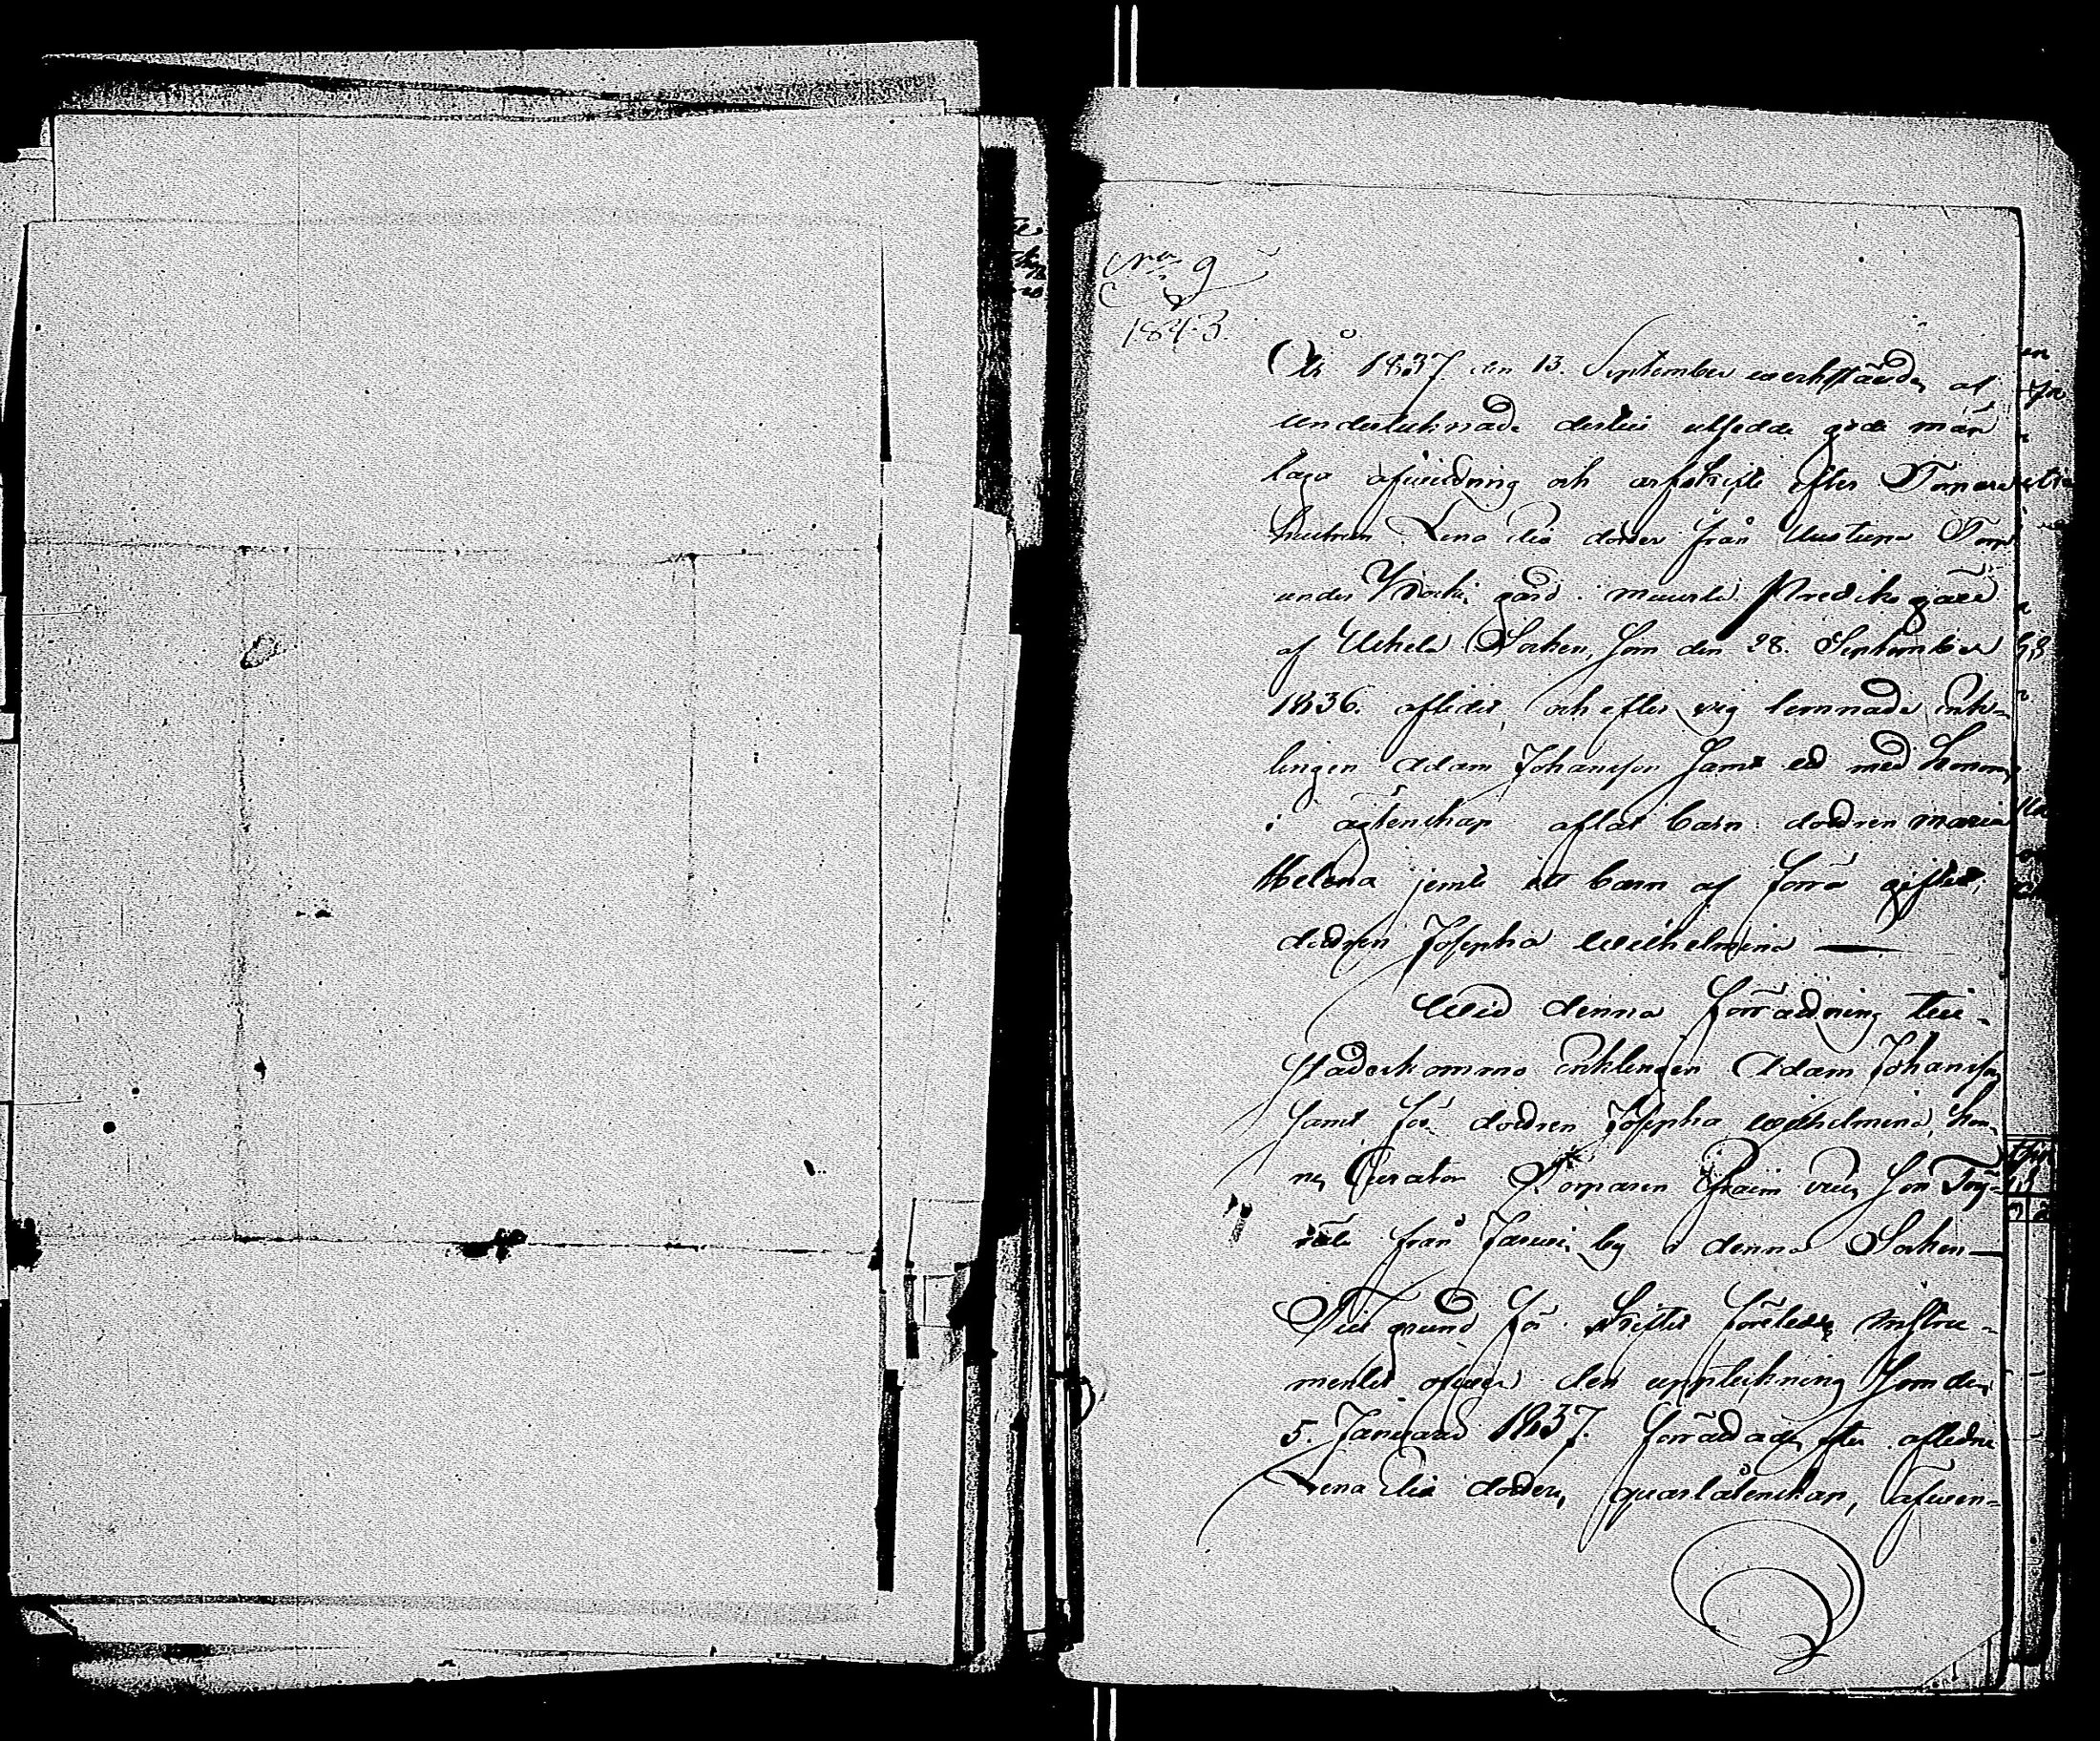 N:o 9
1843.
År 1837 den 13. September werkstäldes af
undertecknade dertill utsedde gode män
laga afwittring och arfskifte efter Torpare
hustrun Lena Elis dotter från Torp
under gård Prediko gäll
af Uskela Socken, som den 28. September
1836. aflidit, och efter sig lemnade Enk-
lingen Adam Johansson samt ett med honom
i ägtenskap aflat barn: dottren Maria
Helena jemte ett barn af förra giftet,
dottren Josepha Wilhelmina —
Wid denna förrättning till-
städeskommo Enklingen Adam Johansson
samt för dottren Josepha Wilhelmina, hen-
nes Curator Torparen från
by i denna Socken —
Till grund för Skiftet företeddes Instru-
mentet öfwer den uppteckning som den
5. Januari 1837. förrättades efter aflidne
Lena Elis dotters qwarlåtenskap, äfwen-